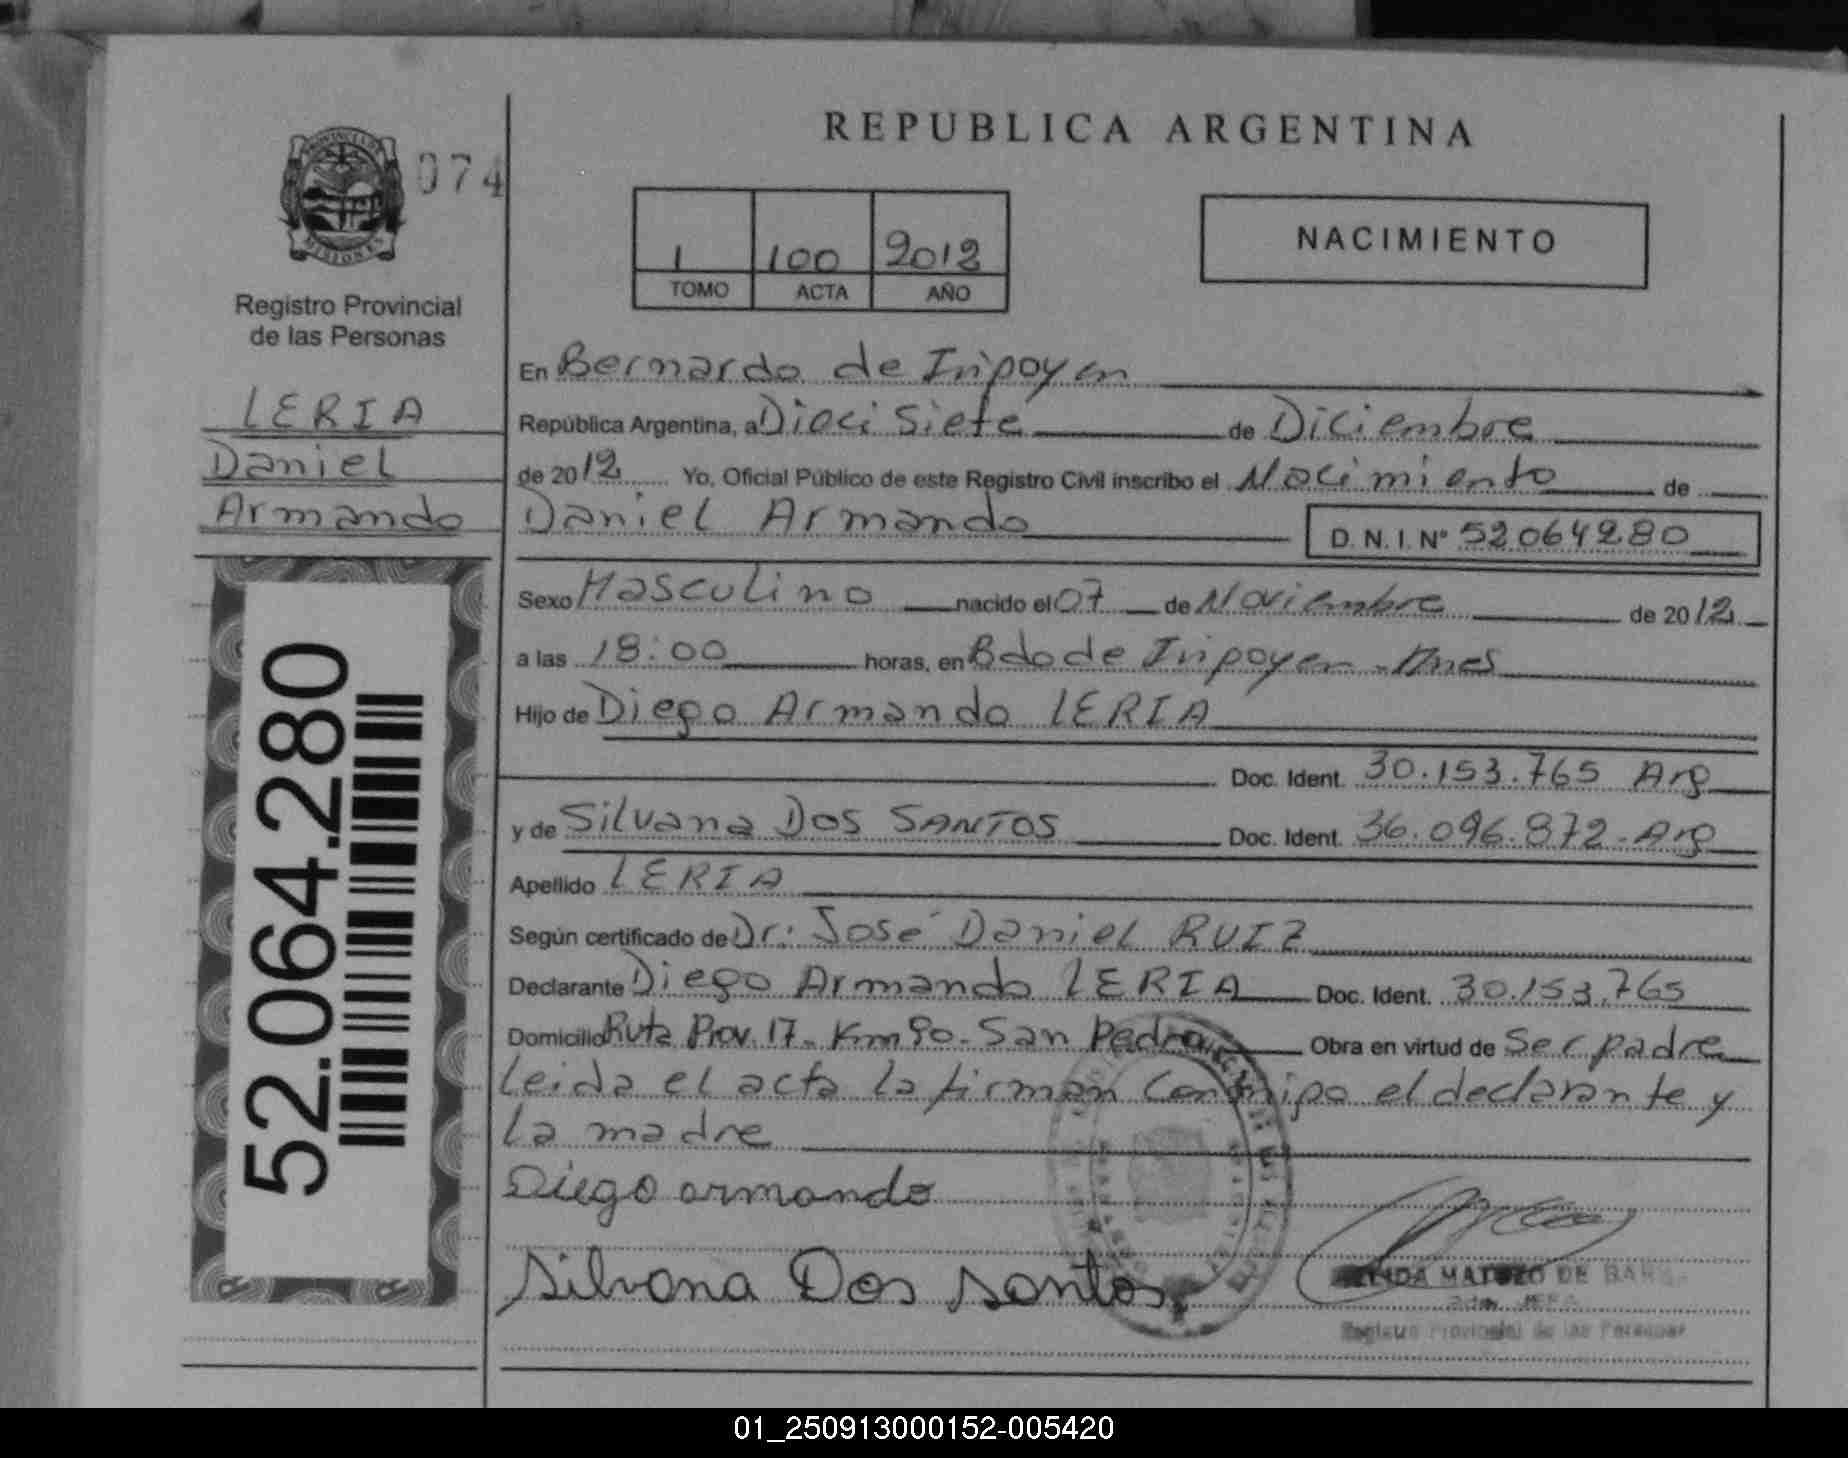 REPUBLICA ARGENTINA
PROVINCIA DE
MISIONES
074
Registro Provincial
de las Personas
LERIA
Daniel
Armando
52.064.280
1 100 2012
TOMO ACTA AÑO
NACIMIENTO
En Bernardo de Iripoyen
República Argentina, a Dieci Siete de Diciembre
de 2012 Yo, Oficial Público de este Registro Civil inscribo el Nacimiento de
Daniel Armando D. N. I. Nº 52064280
Sexo Masculino nacido el 07 de Noviembre de 2012
a las 18:00 horas, en Bdo de Iripoyen - Mnes
Hijo de Diego Armando LERIA
Doc. Ident. 30.153.765 Arg
y de Silvana DOS SANTOS Doc. Ident. 36.096.872 - Arg
Apellido LERIA
Según certificado de Dr: José Daniel RUIZ
Declarante Diego Armando LERIA Doc. Ident. 30.153.765
Domicilio Ruta Prov. 17 - Km 90 - San Pedro Obra en virtud de Ser padre
Leida el acta la firman conmigo el declarante y
la madre
Diego armando
Silvana Dos santos
MATOZO DE
JEFA
Registro Provincial de las Personas
01_250913000152-005420